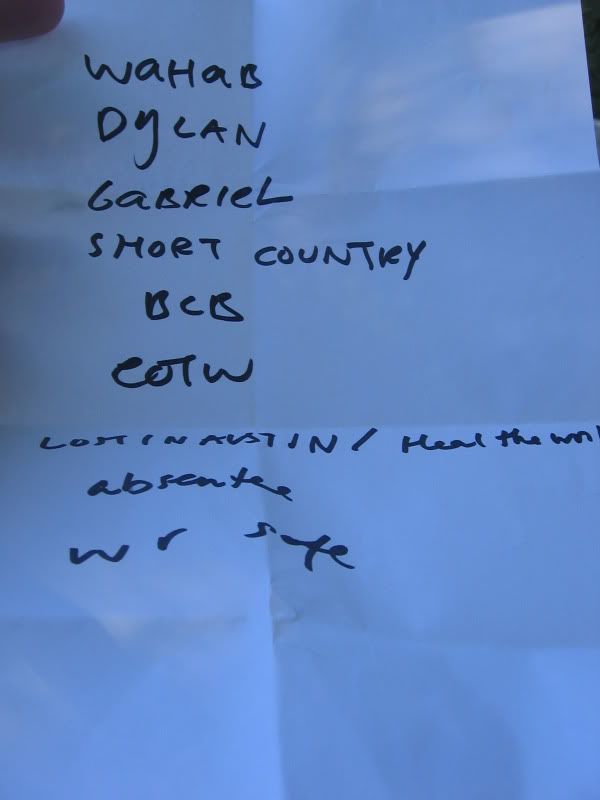 WAHAB
DYLAN
GABRIEL
SHORT COUNTRY
BCB
COTW
LOST IN AUSTIN / Heal the
absentee
w r safe